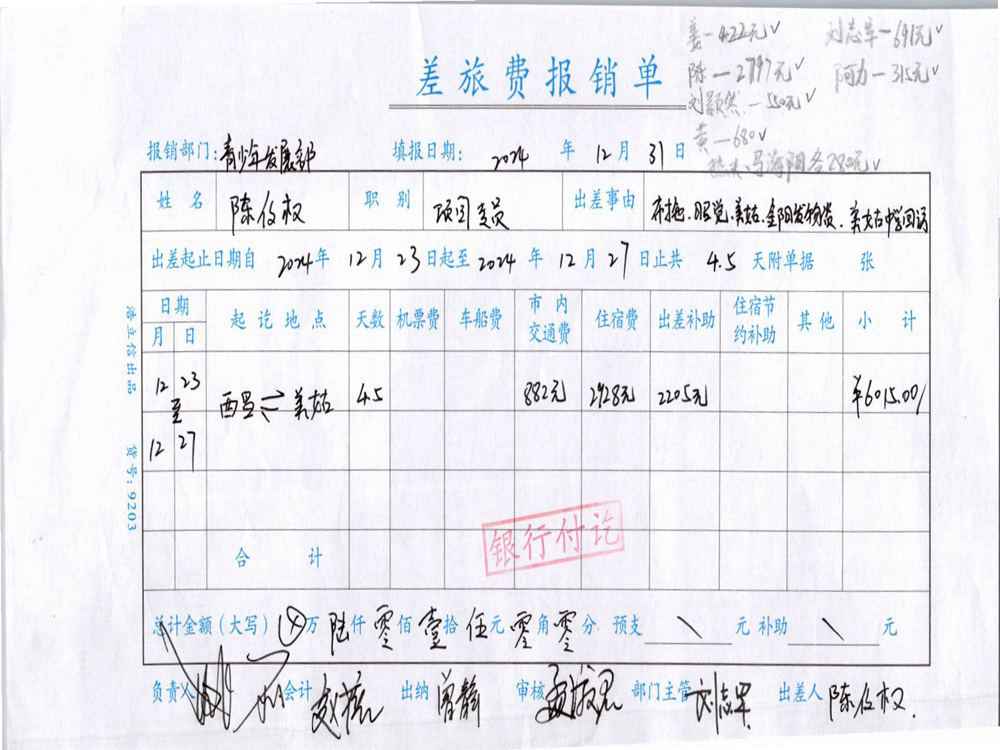 姜一422元✓ 刘志军一641元✓
差旅费报销单
陈一2797元✓ 阿力一315元✓
刘颖然一550元✓
黄一680✓
报销部门:青少年发展部 填报日期: 2024 年 12 月 31 日
姓名 陈 权 职别 项目专员 出差事由 布拖、昭觉、美姑、金阳发物资、美姑中学回访
出差起止日期自 2024年 12月 23日起至 2024 年 12月 27日止共 4.5 天附单据 张
日期 月 日 起讫地点 天数 机票费 车船费 市内交通费 住宿费 出差补助 住宿节约补助 其他 小计
12 23 至 12 27 西昌⇌美姑 4.5 882元 2928元 2205元 ¥6015.00/
浩立信出品 货号:9203
银行付讫
合计
总计金额(大写) ⊗万 陆仟 零佰 壹拾 伍元 零角 零分 预支 \ 元 补助 \ 元
负责人 会计 出纳 曾静 审核 部门主管 刘志军 出差人 陈 权